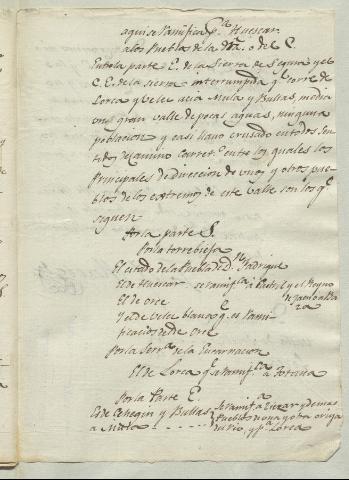 aqui se ramifica p.ª Huescar
a los Pueblos de la dra. o del E.
Entre la parte E. de la Sierra de Segura y el
E. de la sierra interrumpida q.e corre de
Lorca y Velez acia Mula y Bullas, media
un gran valle de pocas aguas, ninguna
poblacion y casi llano crusado en todos sen-
tidos de camino carret.s entre los quales los
Principales de direccion de unos y otros pue-
blos de los extremos de este Valle son los q.e
siguen
Por la parte S.
Por la torrebieja
El citado de la Puebla de D.n Fadrique
El de Huescar se ramifi.ca a Castril y el Reyno
El de orce
y el de Velez blanco q.e es rami-
ficacion de de Orce
Por la Serr.ª de la Encarnacion
El de Lorca q.e se ramif.ca a Totana
Por la Parte E.
El de Cehegin y Bullas
a Mula
se ramif.ca a Ricar y demas
Pueblos
y p.ª Lorca